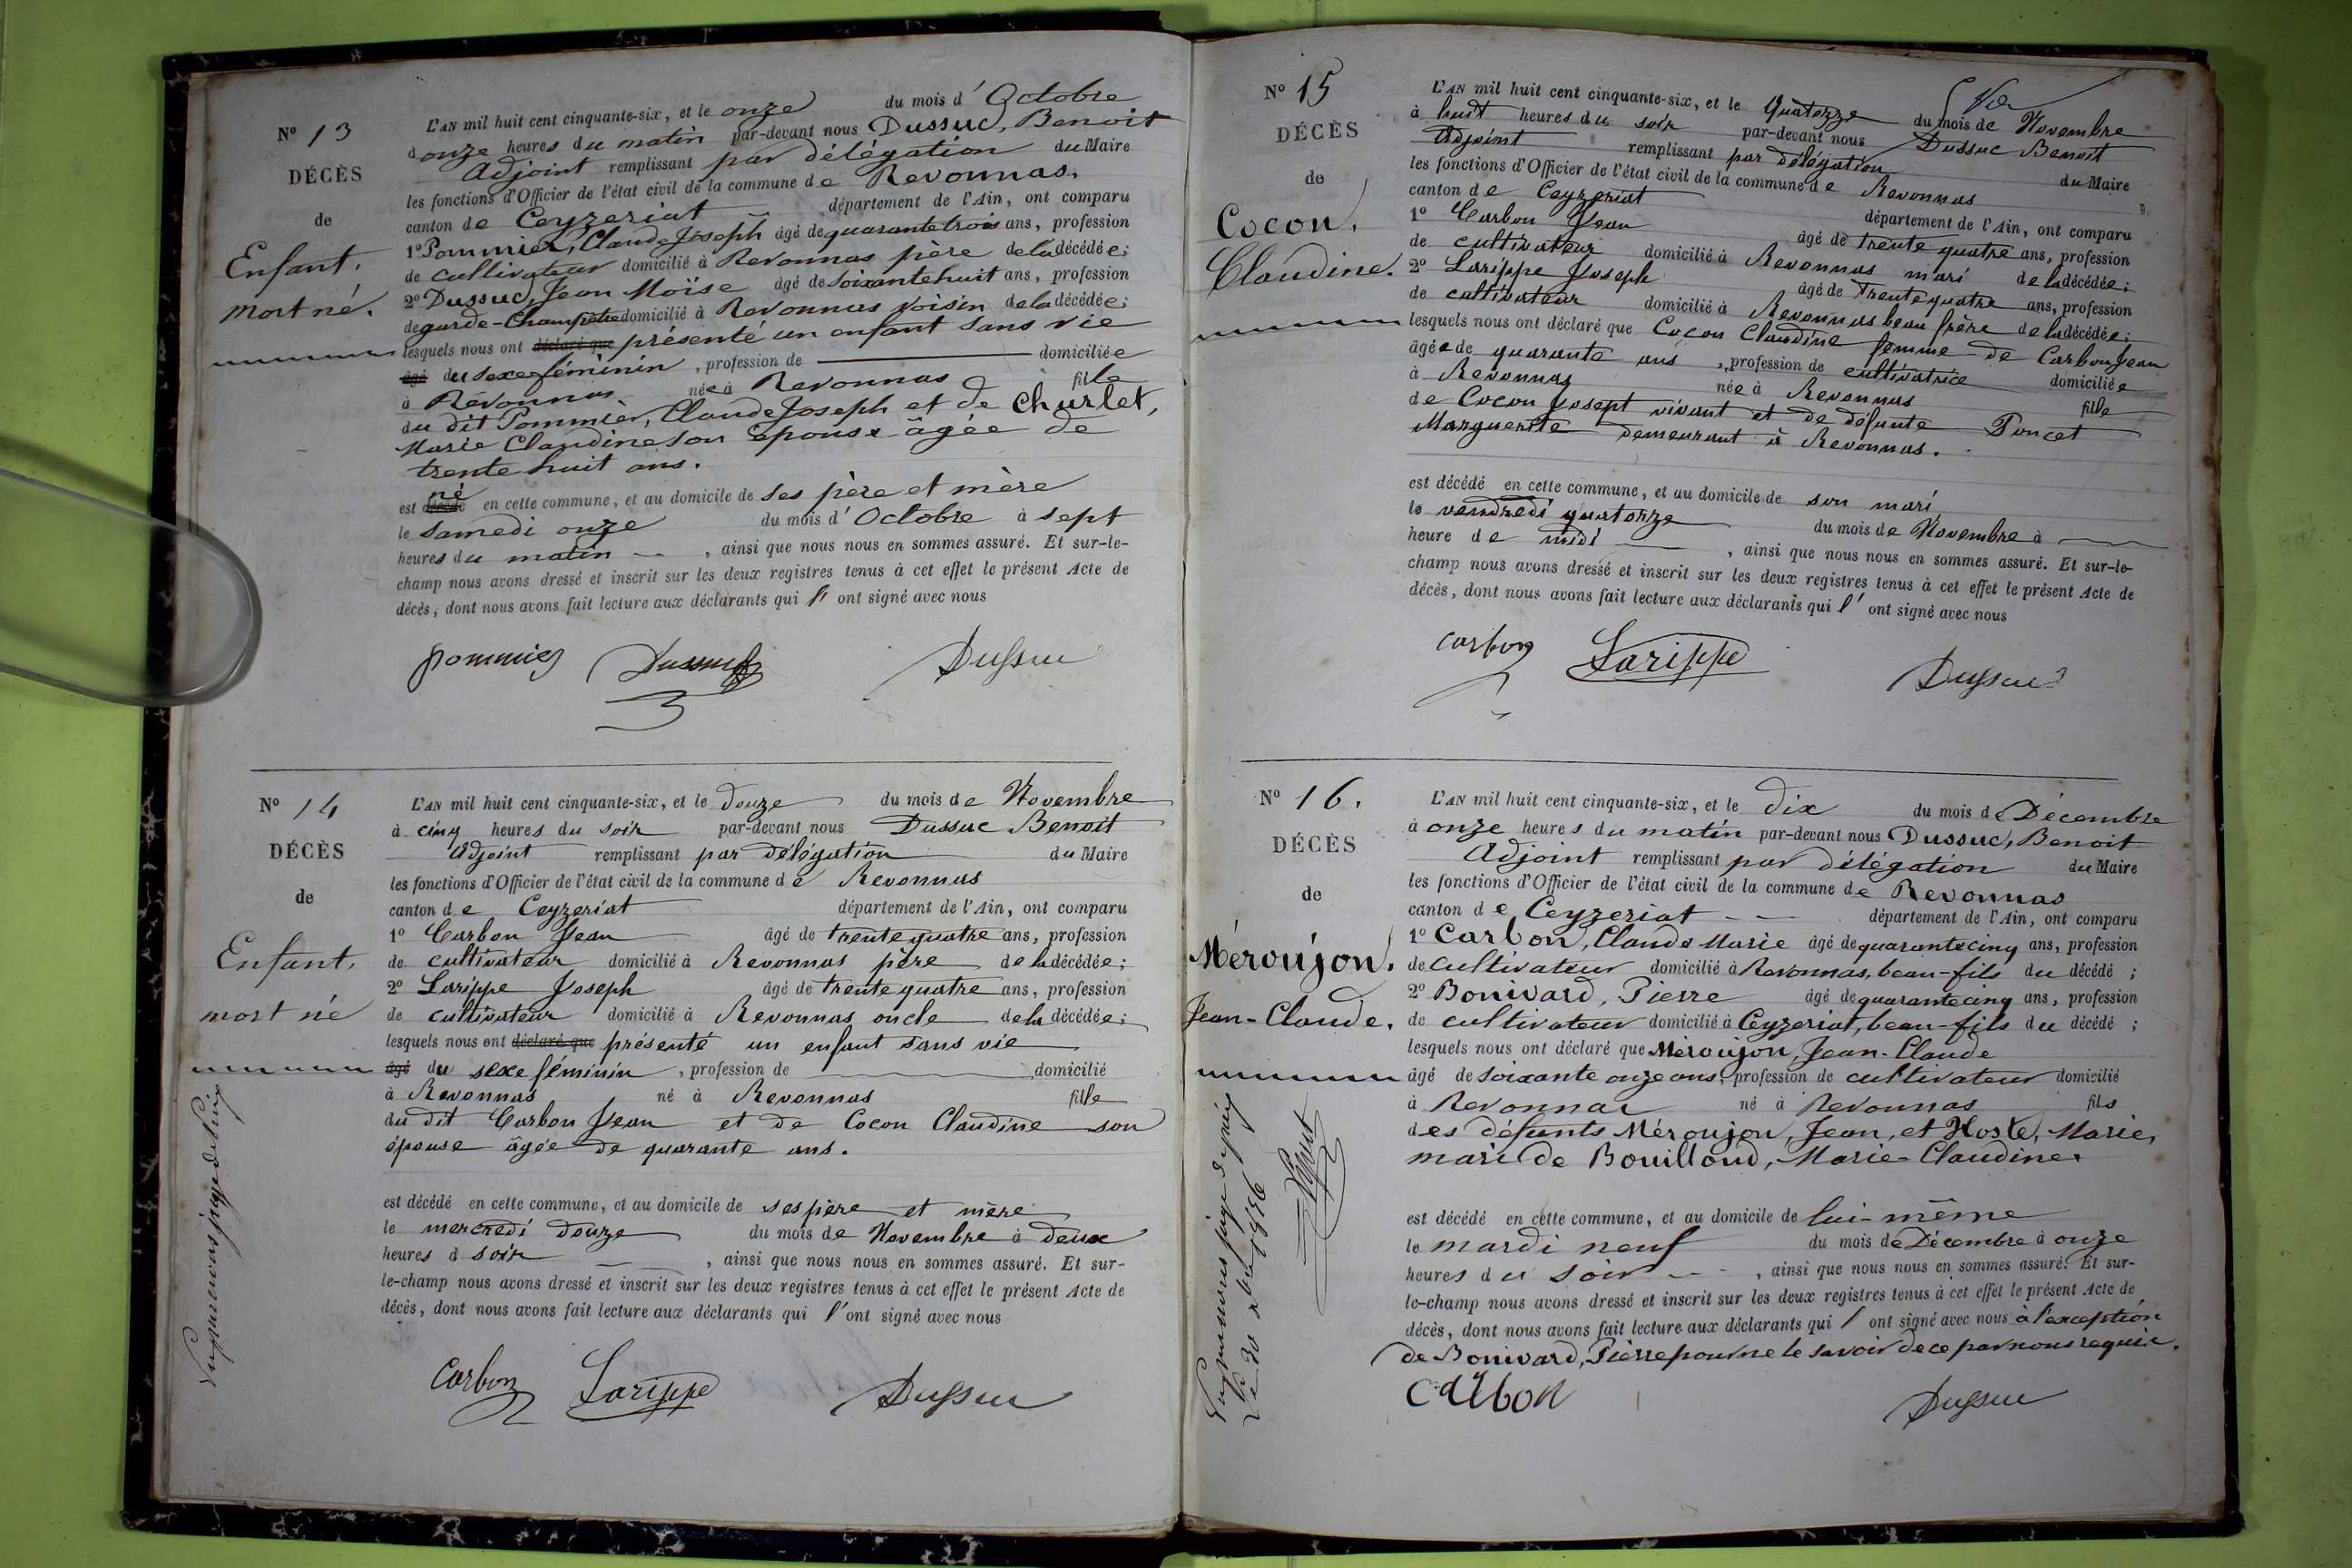 N° 13
DÉCÈS
de
Enfant.
mort né.
L'AN mil huit cent cinquante-six, et le onze du mois d'Octobre
à onze heures du matin par-devant nous Dussuc, Benoit
Adjoint remplissant par délégation du Maire
les fonctions d'Officier de l'état civil de la commune de Revonnas.
canton de Ceyzeriat département de l'Ain, ont comparu
1° Pommier, Claude Joseph âgé de quarante trois ans, profession
de cultivateur domicilié à Revonnas père de la décédée;
2° Dussuc, Jean Moïse âgé de soixante huit ans, profession
de garde-Champêtre domicilié à Revonnas voisin de la décédée;
lesquels nous ont déclaré que présenté un enfant sans vie
âgé du sexe féminin, profession de domiciliée
à Revonnas née à Revonnas fille
du dit Pommier, Claude Joseph et de Churlet,
Marie Claudine son épouse âgée de
trente huit ans.
est décédé né en cette commune, et au domicile de ses père et mère
le samedi onze du mois d'Octobre à sept
heures du matin, ainsi que nous nous en sommes assuré. Et sur-le-
champ nous avons dressé et inscrit sur les deux registres tenus à cet effet le présent Acte de
décès, dont nous avons fait lecture aux déclarants qui l'ont signé avec nous
pommier Dussuc Dussuc
N° 14
DÉCÈS
de
Enfant.
mort né
L'AN mil huit cent cinquante-six, et le douze du mois de Novembre
à cinq heures du soir par-devant nous Dussuc Benoit
Adjoint remplissant par délégation du Maire
les fonctions d'Officier de l'état civil de la commune de Revonnas
canton de Ceyzeriat département de l'Ain, ont comparu
1° Carbon Jean âgé de trente quatre ans, profession
de cultivateur domicilié à Revonnas père de la décédée;
2° Larippe Joseph âgé de trente quatre ans, profession
de cultivateur domicilié à Revonnas oncle de la décédée;
lesquels nous ont déclaré que présenté un enfant sans vie
âgé du sexe féminin, profession de domicilié
à Revonnas né à Revonnas fille
du dit Carbon Jean et de Cocon Claudine son
épouse âgée de quarante ans.
est décédé en cette commune, et au domicile de ses père et mère
le mercredi douze du mois de Novembre à deux
heures d soir, ainsi que nous nous en sommes assuré. Et sur-
le-champ nous avons dressé et inscrit sur les deux registres tenus à cet effet le présent Acte de
décès, dont nous avons fait lecture aux déclarants qui l'ont signé avec nous
Carbon Larippe Dussuc
Vu par nous juge de paix
N° 15
DÉCÈS
de
Cocon.
Claudine.
L'AN mil huit cent cinquante-six, et le Quatorze du mois de Novembre
à huit heures du soir par-devant nous Dussuc Benoit
Adjoint remplissant par délégation du Maire
les fonctions d'Officier de l'état civil de la commune de Revonnas
canton de Ceyzeriat département de l'Ain, ont comparu
1° Carbon Jean âgé de trente quatre ans, profession
de cultivateur domicilié à Revonnas mari de la décédée;
2° Larippe Joseph âgé de trente quatre ans, profession
de cultivateur domicilié à Revonnas beau frère de la décédée;
lesquels nous ont déclaré que Cocon Claudine femme de Carbon Jean
âgée de quarante ans, profession de cultivatrice domiciliée
à Revonnas née à Revonnas fille
de Cocon Josept vivant et de défunte Poncet
Marguerite demeurant à Revonnas.
est décédé en cette commune, et au domicile de son mari
le vendredi quatorze du mois de Novembre à
heure de midi, ainsi que nous nous en sommes assuré. Et sur-le-
champ nous avons dressé et inscrit sur les deux registres tenus à cet effet le présent Acte de
décès, dont nous avons fait lecture aux déclarants qui l'ont signé avec nous
carbon Larippe Dussuc
N° 16.
DÉCÈS
de
Méroujon.
Jean-Claude.
L'AN mil huit cent cinquante-six, et le dix du mois de Décembre
à onze heures du matin par-devant nous Dussuc, Benoit
Adjoint remplissant par délégation du Maire
les fonctions d'Officier de l'état civil de la commune de Revonnas
canton de Ceyzeriat département de l'Ain, ont comparu
1° Carbon, Claude Marie âgé de quarante cinq ans, profession
de cultivateur domicilié à Revonnas, beau-fils du décédé;
2° Bonivard, Pierre âgé de quarante cinq ans, profession
de cultivateur domicilié à Ceyzeriat, beau-fils du décédé;
lesquels nous ont déclaré que Méroujon, Jean-Claude
âgé de soixante onze ans, profession de cultivateur domicilié
à Revonnas né à Revonnas fils
des défunts Méroujon, Jean, et Hoste, Marie,
mari de Bouilloud, Marie-Claudine.
est décédé en cette commune, et au domicile de lui-même
le mardi neuf du mois de Décembre à onze
heures du soir, ainsi que nous nous en sommes assuré. Et sur-
le-champ nous avons dressé et inscrit sur les deux registres tenus à cet effet le présent Acte de
décès, dont nous avons fait lecture aux déclarants qui l'ont signé avec nous à l'exception
de Bonivard, Pierre pour ne le savoir de ce par nous requis.
Carbon Dussuc
Vu par nous juge de paix